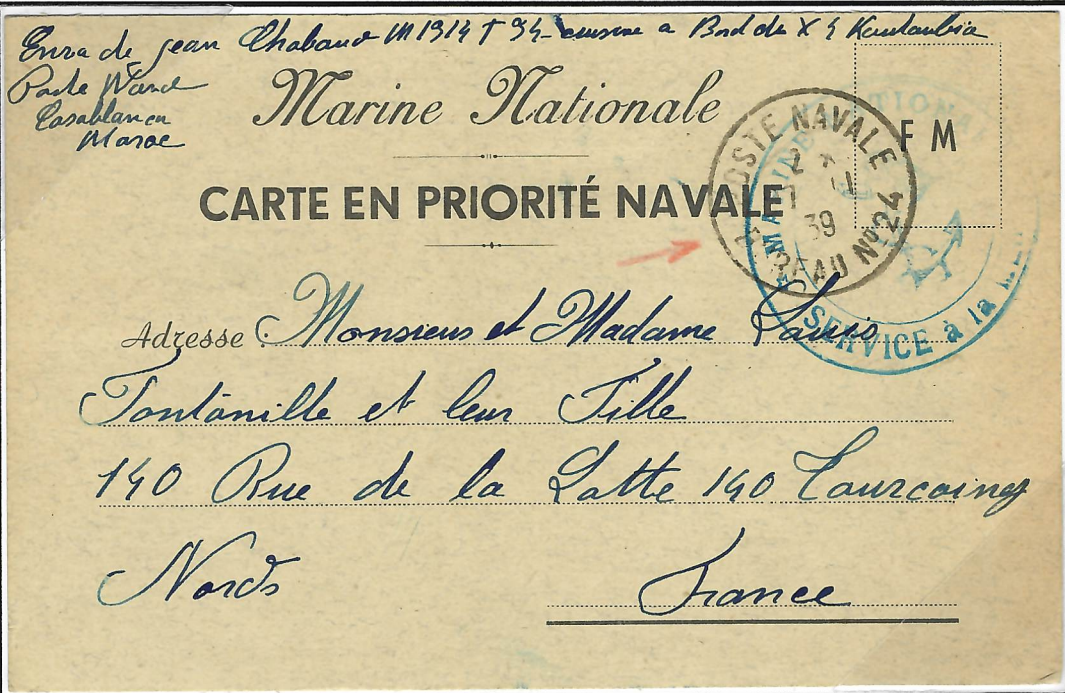 Envoi de jean Chabaud M 1914 T 34 cuisine a Bord du X 4 Kantanbia
Poste Navale
Casablanca
Maroc
Marine Nationale
F M
CARTE EN PRIORITÉ NAVALE
POSTE NAVALE
39
BUREAU Nº 24
MARINE NATIONALE
SERVICE à la
Adresse : Monsieur et Madame Louis
Fontanille et leur Fille
140 Rue de la Latte 140 Tourcoing
Nords
France